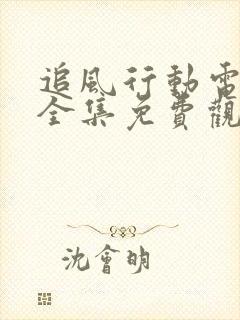 追風行動電
全集免費觀
沈會明